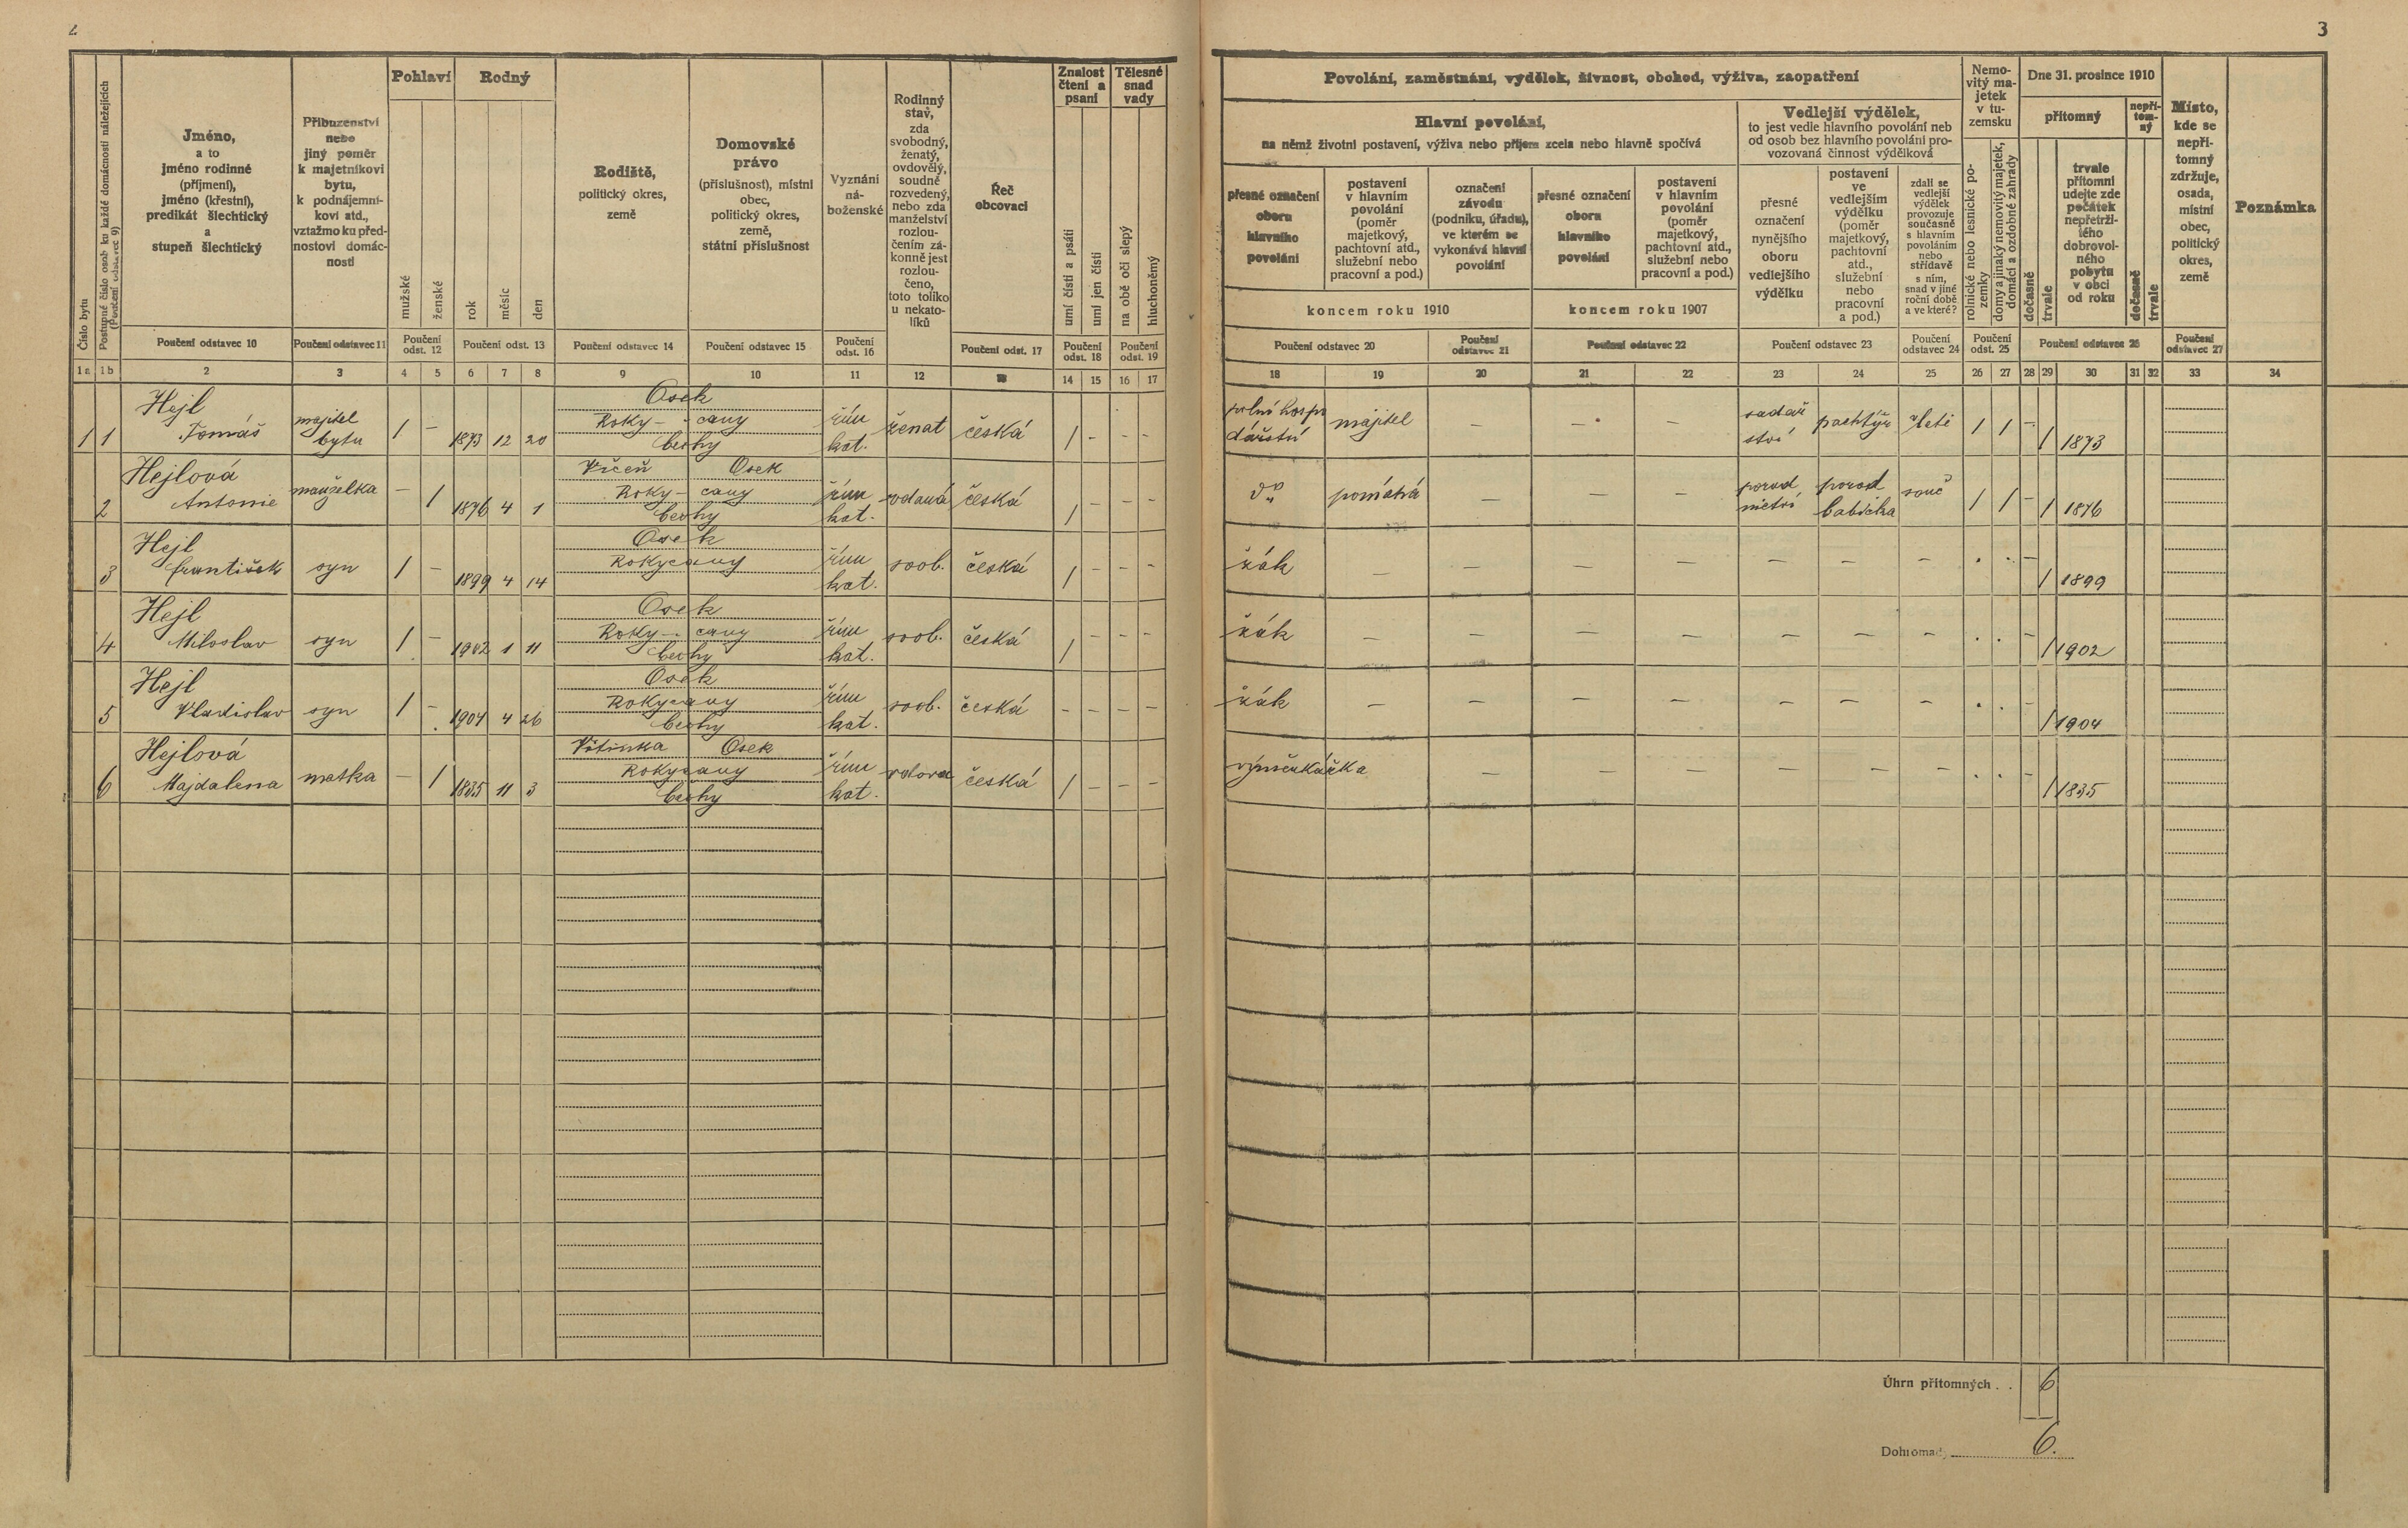 2
3
Číslo bytu
Postupné číslo osob ku každé domácnosti náležejících
(Poučení odstavec 9)
Jméno,
a to
jméno rodinné
(příjmení),
jméno (křestní),
predikát šlechtický
a
stupeň šlechtický
Příbuzenství
nebo
jiný poměr
k majetníkovi
bytu,
k podnájemní-
kovi atd.,
vztažmo ku před-
nostovi domác-
nosti
Pohlaví
mužské
ženské
Rodný
rok
měsíc
den
Rodiště,
politický okres,
země
Domovské
právo
(příslušnost), místní
obec,
politický okres,
země,
státní příslušnost
Vyznání
ná-
boženské
Rodinný
stav,
zda
svobodný,
ženatý,
ovdovělý,
soudně
rozvedený,
nebo zda
manželství
rozlou-
čením zá-
konně jest
rozlou-
čeno,
toto toliko
u nekato-
líků
Řeč
obcovací
Znalost
čtení a
psaní
umí čísti a psáti
umí jen čísti
Tělesné
snad
vady
na obě oči slepý
hluchoněmý
Poučení odstavec 10
Poučení odstavec 11
Poučení
odst. 12
Poučení odst. 13
Poučení odstavec 14
Poučení odstavec 15
Poučení
odst. 16
Poučení odst. 17
Poučení
odst. 18
Poučení
odst. 19
1a 1b 2 3 4 5 6 7 8 9 10 11 12 13 14 15 16 17
Povolání, zaměstnání, výdělek, živnost, obchod, výživa, zaopatření
Hlavní povolání,
na němž životní postavení, výživa nebo příjem zcela nebo hlavně spočívá
přesné označení
oboru
hlavního
povolání
postavení
v hlavním
povolání
(poměr
majetkový,
pachtovní atd.,
služební nebo
pracovní a pod.)
označení
závodu
(podniku, úřadu),
ve kterém se
vykonává hlavní
povolání
přesné označení
oboru
hlavního
povolání
postavení
v hlavním
povolání
(poměr
majetkový,
pachtovní atd.,
služební nebo
pracovní a pod.)
koncem roku 1910
koncem roku 1907
Vedlejší výdělek,
to jest vedle hlavního povolání neb
od osob bez hlavního povolání pro-
vozovaná činnost výdělková
přesné
označení
nynějšího
oboru
vedlejšího
výdělku
postavení
ve
vedlejším
výdělku
(poměr
majetkový,
pachtovní
atd.,
služební
nebo
pracovní
a pod.)
zdali se
vedlejší
výdělek
provozuje
současně
s hlavním
povoláním
nebo
střídavě
s ním,
snad v jiné
roční době
a ve které?
Nemo-
vitý ma-
jetek
v tu-
zemsku
rolnické nebo lesnické po-
zemky
domy a jinaký nemovitý majetek,
domácí a ozdobné zahrady
Dne 31. prosince 1910
přítomný
nepří-
tom-
ný
dočasně
trvale
trvale
přítomní
udejte zde
počátek
nepřetrži-
tého
dobrovol-
ného
pobytu
v obci
od roku
dočasně
trvale
Místo,
kde se
nepří-
tomný
zdržuje,
osada,
místní
obec,
politický
okres,
země
Poznámka
Poučení odstavec 20
Poučení
odstavec 21
Poučení odstavec 22
Poučení odstavec 23
Poučení
odstavec 24
Poučení
odst. 25
Poučení odstavec 26
Poučení
odstavec 27
18 19 20 21 22 23 24 25 26 27 28 29 30 31 32 33 34
Hejl Osek
majitel Roky- cany řím polní hospo sadař
1 1 Tomáš bytu / – 1873 12 20 Čechy kat. ženat česká / – – – dářství majitel – – – ství pachtýř v létě / / – / 1873
Hejlová Vřceň Osek
manželka Roky- cany řím porod porod
2 Antonie – / 1876 4 1 Čechy kat. vdaná česká / – – – dto pomáhá – – – nictví babička souč / / – / 1876
Hejl Osek
3 František syn / – 1899 4 14 Rokycany řím kat. svob. česká / – – – žák – – – – – – – . . – / 1899
Hejl Osek
Roky- cany řím
4 Miloslav syn / – 1902 1 11 Čechy kat. svob. česká / – – – žák – – – – – – – . . – / 1902
Hejl Osek
Rokycany řím
5 Vladislav syn / – 1904 4 26 Čechy kat. svob. česká – – – – žák – – – – – – – . . – / 1904
Hejlová Vitinka Osek
Rokycany řím
6 Majdalena matka – / 1835 11 3 Čechy kat. vdova česká / – – – výměnkářka – – – – – – . . – / 1835
Úhrn přítomných . . 6
Dohromady 6.